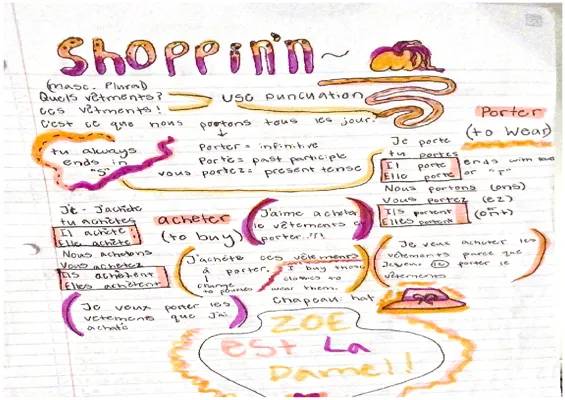 Shoppin'n ~
(masc. Plural)
Quels vêtments?
ces vêtments!
use puncuation
C'est ce que nous portons tous les jour.
Porter = infinitive
Porté = past participle
vous portez = present tense
tu always
ends in
"s"
Porter
(to wear)
Je porte
tu portes
Il porte
Elle porte
ends with
or
Nous portons (ons)
Vous portez (ez)
Ils portent
Elles portent
(ent)
J'achète
tu achètes
Il achète
Elle achète
Nous achetons
Vous achetez
Ils achètent
Elles achètent
acheter
(to buy)
J'aime acheter
le vêtments
porter
J'achète ces vêtements
à porter.
I buy those
to
wear them.
change
Je veux acheter les
vêtments parce que
porter le
vêtments
Chapeau: hat
Je veux porter les
vetements que j'ai
acheté
ZOE
est La
Dame!!